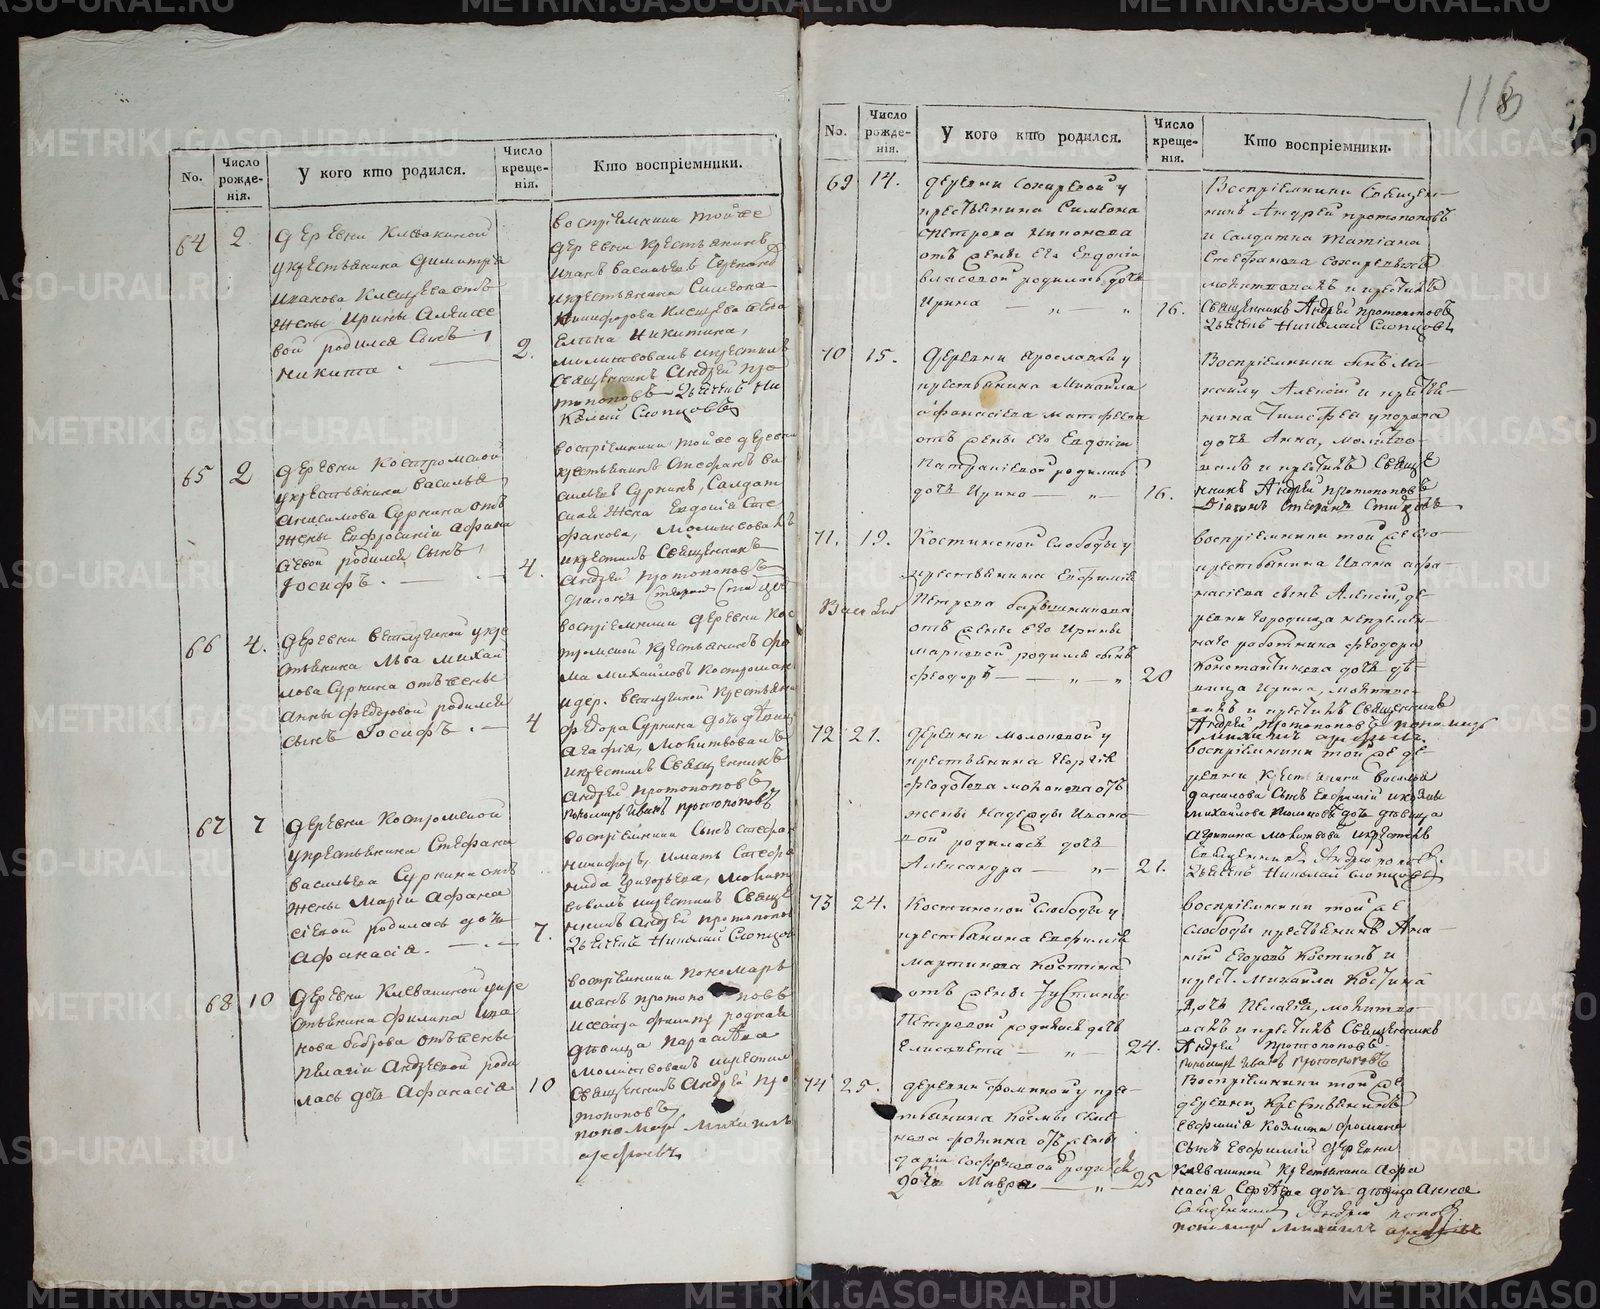 118
No.
Число рожденія.
У кого кто родился.
Число крещенія.
Кто воспріемники.
64
2
Деревни Клевакиной
у крестьянина Димитрія
Иванова Клещева отъ
жены Ирины Алексее
вой родился сынъ
Никита.
2.
воспріемники той же
деревни крестьянинъ
Иванъ Васильевъ
и крестьянина Симеона
Никифорова Клещева жена
Елена Никитина,
молитвовалъ и крестилъ
священникъ Андрей Про
топоповъ Дьячекъ Ни
колай Слопцовъ
65
2
Деревни Костромской
у крестьянина Василья
Анисимова Суркина отъ
жены Евфросиніи Афана
сіевой родился сынъ,
Іосифъ.
4.
воспріемники той же деревни
крестьянинъ Стефанъ Ва
сильевъ Суркинъ, Солдат
ская жена Евдокія Сте
фанова, молитвовалъ
и крестилъ священникъ
Андрей Протопоповъ
діаконъ Стефанъ
66
4.
Деревни Ветлугиной у кре
стьянина Льва Михай
лова Суркина отъ жены
Анны Федоровой родился
сынъ Іосифъ.
4
воспріемники деревни Кос
тромской крестьянинъ Фо
ма Михайловъ Костроман
и дер. Ветлугиной крестьяни
Федора Суркина дочь девица
Агафія, молитвовалъ
и крестилъ Священникъ
Андрей Протопоповъ
пономарь Иванъ Протопоповъ
67
7
Деревни Костромской
у крестьянина Стефана
Васильева Суркина отъ
жены Маріи Афана
сіевой родилась дочь
Афанасія.
7.
воспріемники сынъ Стефан
Никифоръ, и мать Степа
нида Григорьева, молит
вовалъ и крестилъ Священ
никъ Андрей Протопопов
Дьячекъ Николай Слопцов
68
10
Деревни Клевакиной у кре
стьянина Филипа Ива
нова Боброва отъ жены
Пелагіи Андреевой роди
лась дочь Афанасія
10
воспріемники пономарь
Иванъ Протопоповъ
и сего Филипа родная
девица Парасковья
молитвовалъ и крестил
Священникъ Андрей Про
топоповъ
пономарь Михаилъ
Арефьевъ
No.
Число рожденія.
У кого кто родился.
Число крещенія.
Кто воспріемники.
69
14.
Деревни Сохаревой у
крестьянина Симеона
Петрова Никонова
отъ жены его Евдокіи
Власовой родилась дочь
Ирина
16.
Воспріемники Священ-
никъ Андрей Протопоповъ
и солдатка Татіана
Стефанова Сохаревыхъ
молитвовалъ и крестилъ
Священникъ Андрей Протопоповъ
Дьячекъ Николай Слопцовъ
70
15.
Деревни Ярославки у
крестьянина Михайла
Афанасіева Матфеева
отъ жены его Евдокіи
родилась
дочь Ирина
16.
Воспріемники сынъ Ми
хайлу Алексій и крестья-
нина Тимофея
дочь Анна, молитво-
валъ и крестилъ Священ
никъ Андрей Протопоповъ
Діаконъ Стефанъ
71.
19.
Костинской Слободы у
крестьянина Евфимія
Петрова Барышникова
отъ жены его Ирины
Марковой родился сынъ
Феодоръ
20
воспріемники той же сло-
крестьянина Ивана Афа-
насіева сынъ Алексій, де-
ревни Городища непремен-
наго работника Феодора
Константинова дочь де-
вица Ирина, молитво-
валъ и крестилъ Священникъ
Андрей Протопоповъ пономарь
Михаилъ Арефьевъ
72
21.
Деревни Молоковой у
крестьянина Георгія
Феодотова Молокова отъ
жены Надежды Ивано-
вой родилась дочь
Александра
21.
воспріемники той же де-
ревни крестьянина Василья
Данилова сынъ Евфимій и
Михайлова Молокова дочь девица
Агрипина молитвовалъ и крестилъ
Священникъ Андрей
Дьячекъ Николай Слопцовъ
73
24.
Костинской Слободы у
крестьянина Евфимія
Мартинова Костина
отъ жены Іустины
Петровой родилась дочь
Елисавета
24.
воспріемники той же
слободы крестьянинъ Ана-
ній Егоровъ Костинъ и
крест. Михайла Костина
дочь Пелагія, молитво-
валъ и крестилъ Священникъ
Андрей Протопоповъ
Пономарь Иванъ Протопоповъ
74
25.
Деревни Фоминой у кре-
стьянина Космы
Фомина отъ жены
Дарьи родилась
дочь Мавра
25
Воспріемники той же
деревни крестьянинъ
Евфимія Козмина Фомина
сынъ Евфимій деревни
Клевакиной крестьянина Афа
насія Сергеева дочь девица Анна
Священникъ Андрей
пономарь Михаилъ Арефьевъ
METRIKI.GASO-URAL.RU